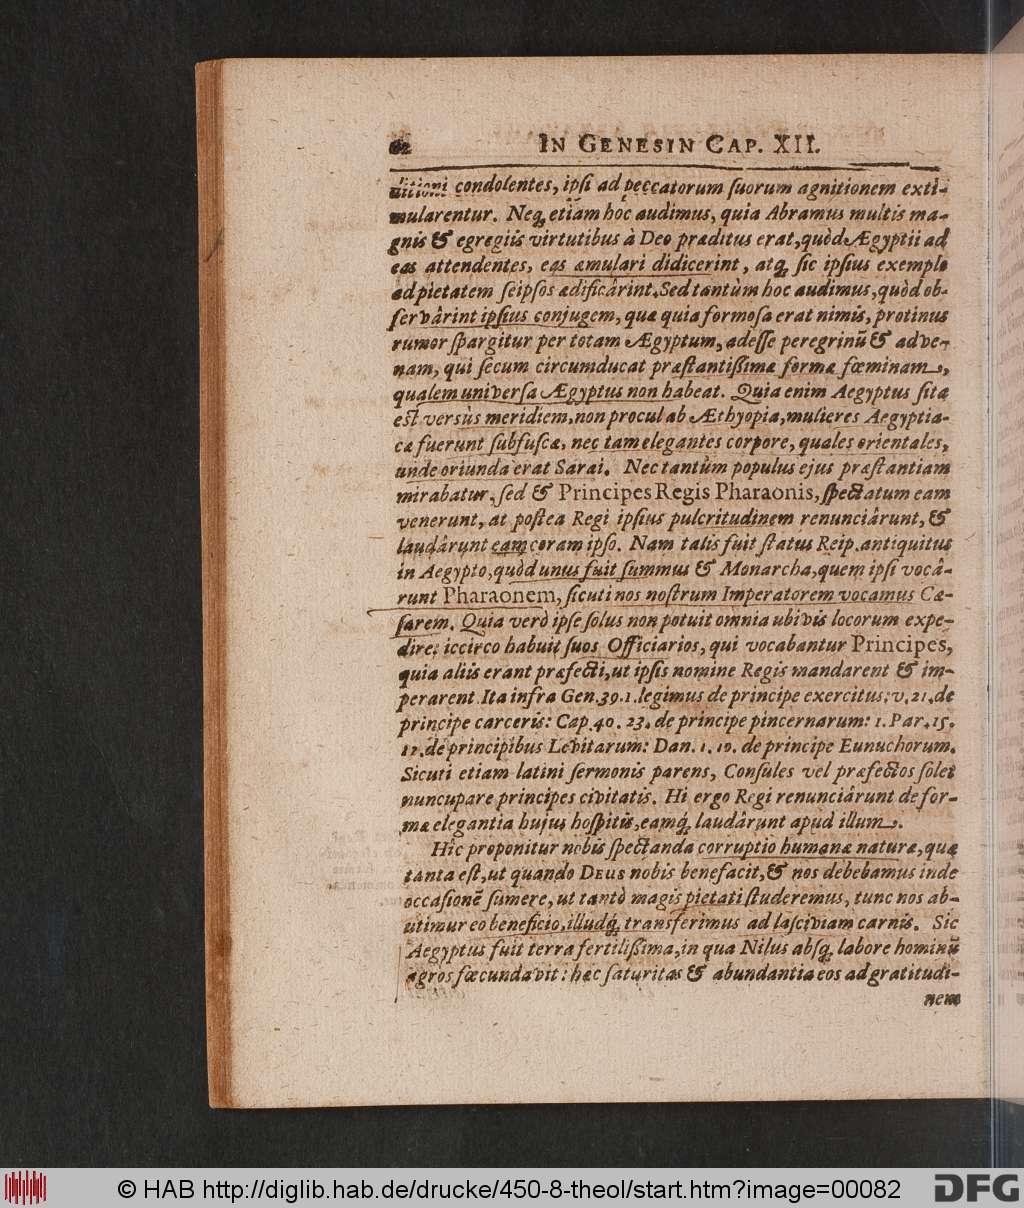 62 IN GENESIN CAP. XII.
ditioni condolentes, ipſi ad peccatorum ſuorum agnitionem exti-
mularentur. Neq; etiam hoc audimus, quia Abramus multis ma-
gnis & egregiis virtutibus à Deo præditus erat, quòd Ægyptii ad
eas attendentes, eas æmulari didicerint, atq; ſic ipſius exemplo
ad pietatem ſeipſos ædificârint. Sed tantùm hoc audimus, quòd ob-
ſervârint ipſius conjugem, quæ quia formoſa erat nimis, protinus
rumor ſpargitur per totam Ægyptum, adeſſe peregrinū & adve-
nam, qui ſecum circumducat præſtantiſſimæ formæ fœminam,
qualem univerſa Ægyptus non habeat. Quia enim Aegyptus ſita
eſt versùs meridiem, non procul ab Æthyopia, mulieres Aegyptia-
cæ fuerunt ſubfuſcæ, nec tam elegantes corpore, quales orientales,
unde oriunda erat Sarai. Nec tantùm populus ejus præſtantiam
mirabatur, ſed & Principes Regis Pharaonis, ſpectatum eam
venerunt, at poſtea Regi ipſius pulcritudinem renunciârunt, &
laudârunt eam coram ipſo. Nam talis fuit ſtatus Reip. antiquitus
in Aegypto, quòd unus fuit ſummus & Monarcha, quem ipſi vocâ-
runt Pharaonem, ſicuti nos noſtrum Imperatorem vocamus Cæ-
ſarem. Quia verò ipſe ſolus non potuit omnia ubivis locorum expe-
dire; iccirco habuit ſuos Officiarios, qui vocabantur Principes,
quia aliis erant præfecti, ut ipſis nomine Regis mandarent & im-
perarent. Ita infra Gen. 39. 1. legimus de principe exercitus; v. 21. de
principe carceris: Cap. 40. 23. de principe pincernarum: 1. Par. 15.
12. de principibus Levitarum: Dan. 1. 10. de principe Eunuchorum.
Sicuti etiam latini ſermonis parens, Conſules vel præfectos ſolet
nuncupare principes civitatis. Hi ergo Regi renunciârunt de for-
mæ elegantia hujus hoſpitis, eamq; laudârunt apud illum.
Hic proponitur nobis ſpectanda corruptio humanæ naturæ, quæ
tanta eſt, ut quando DEUS nobis benefacit, & nos debebamus inde
occaſionē ſumere, ut tantò magis pietati ſtuderemus, tunc nos ab-
utimur eo beneficio, illudq; transferimus ad laſciviam carnis. Sic
Aegyptus fuit terra fertiliſſima, in qua Nilus abſq; labore hominū
agros fœcundavit: hæc ſaturitas & abundantia eos ad gratitudi-
nem
© HAB http://diglib.hab.de/drucke/450-8-theol/start.htm?image=00082
DFG